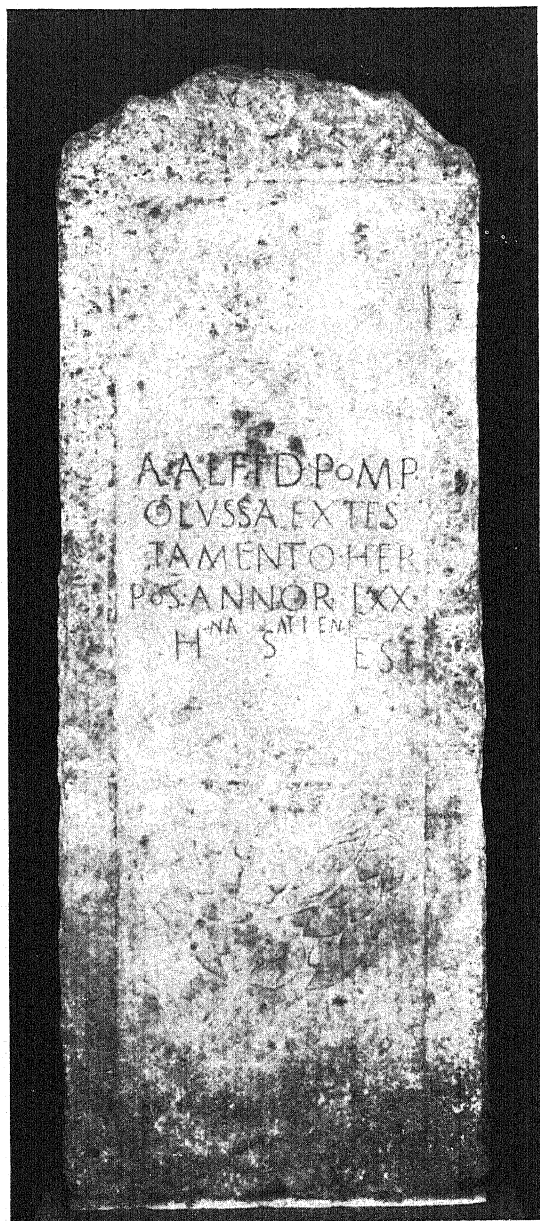 A·ALFIDI·POMP
OLVSSA·EX TES
TAMENTO·HER
POS·ANNOR·LXX·
NA ATHEN
H S EST